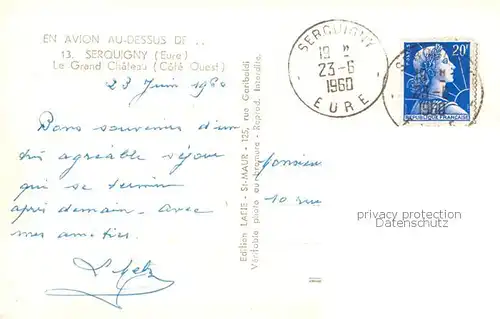 EN AVION AU-DESSUS DE ...
13. SERQUIGNY (Eure)
Le Grand Château (Côté Ouest)
23 Juin 1960
Bons souvenirs d'un
très agréable séjour
qui se termine
après demain. avec
mes amitiés.
Edition LAPIE - St-MAUR - 125, rue Garibaldi
Véritable photo au bromure - Reprod. Interdite.
SERQUIGNY
19 H
23-6
1960
EURE
20F
REPUBLIQUE FRANÇAISE
1960
Monsieur
10 rue
privacy protection
Datenschutz